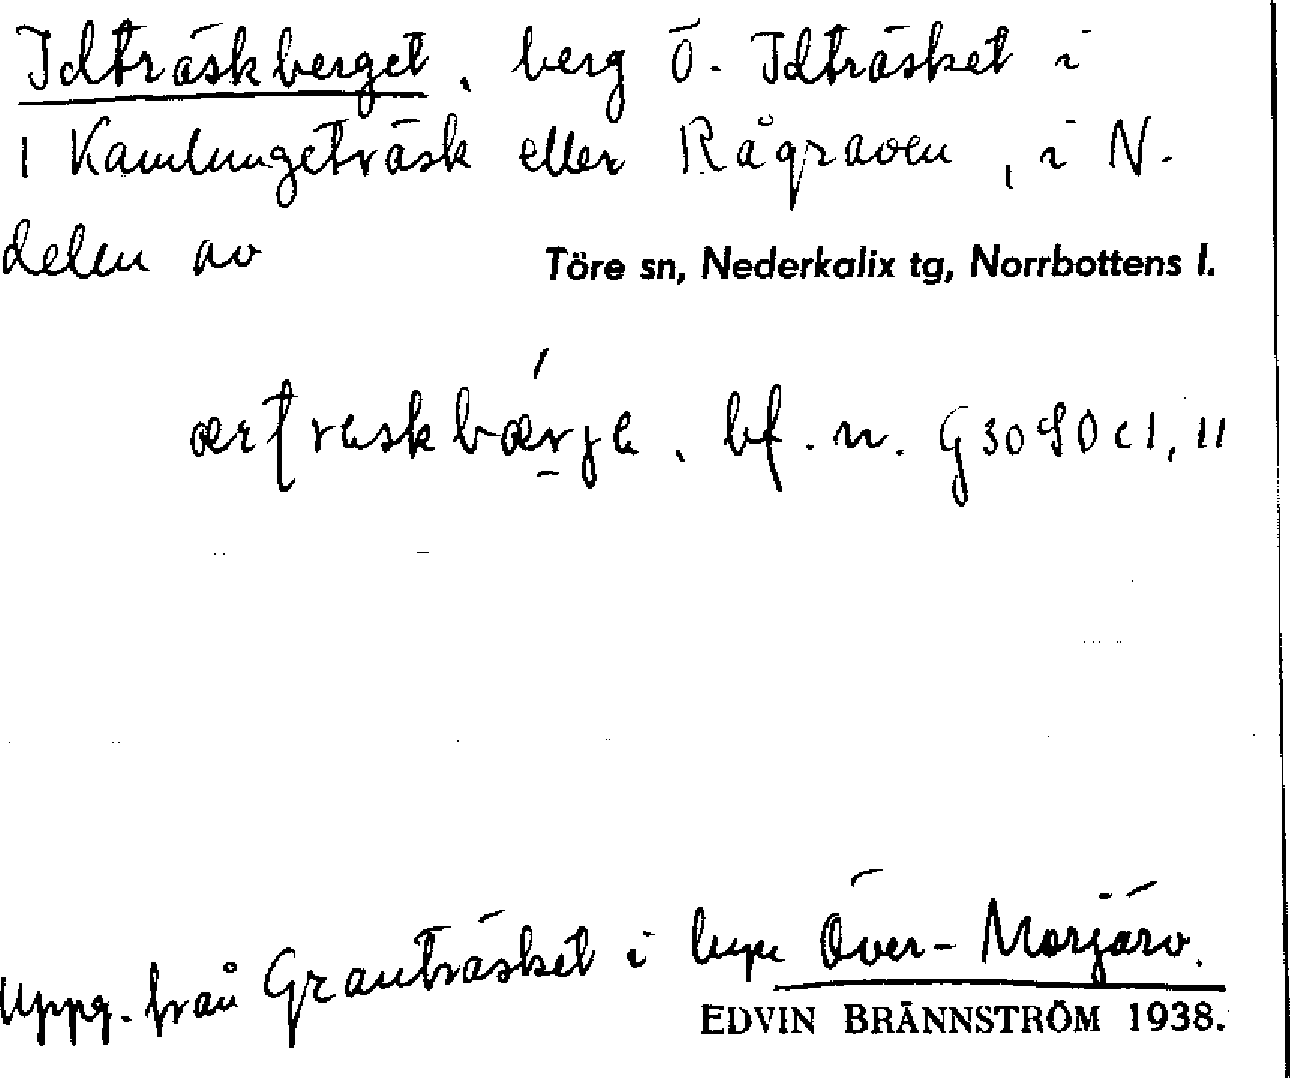 Idträskberget, berg Ö. Idträsket i
1 Kamlungeträsk eller Rågraven, i N.
delen av Töre sn, Nederkalix tg, Norrbottens l.
bf. n.
Uppg. från Granträsket i byn Över-Morjärv.
EDVIN BRÄNNSTRÖM 1938.